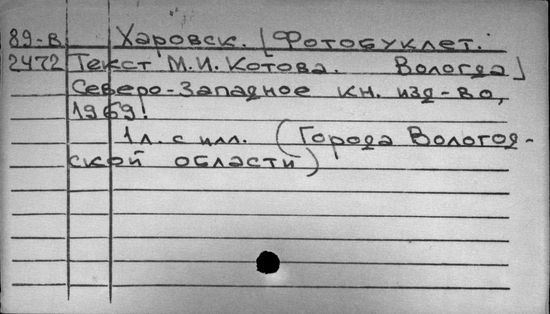 89-в Харовск. [Фотобуклет.
2472 Текст М.И. Котова. Вологда]
Северо-Западное кн. изд-во,
1969!
1 л. с илл. (Города Вологод-
ской области)